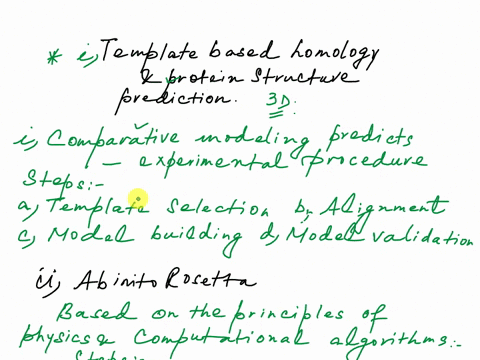 * i, Template based homology
& protein Structure
prediction. 3D
i, Comparative modeling predicts
— experimental procedure
Steps:-
a, Template Selection b, Alignment
c, Model building d, Model validation
ii, Abinito Rosetta
Based on the principles of
physics & Computational algorithms:-
Steps:-